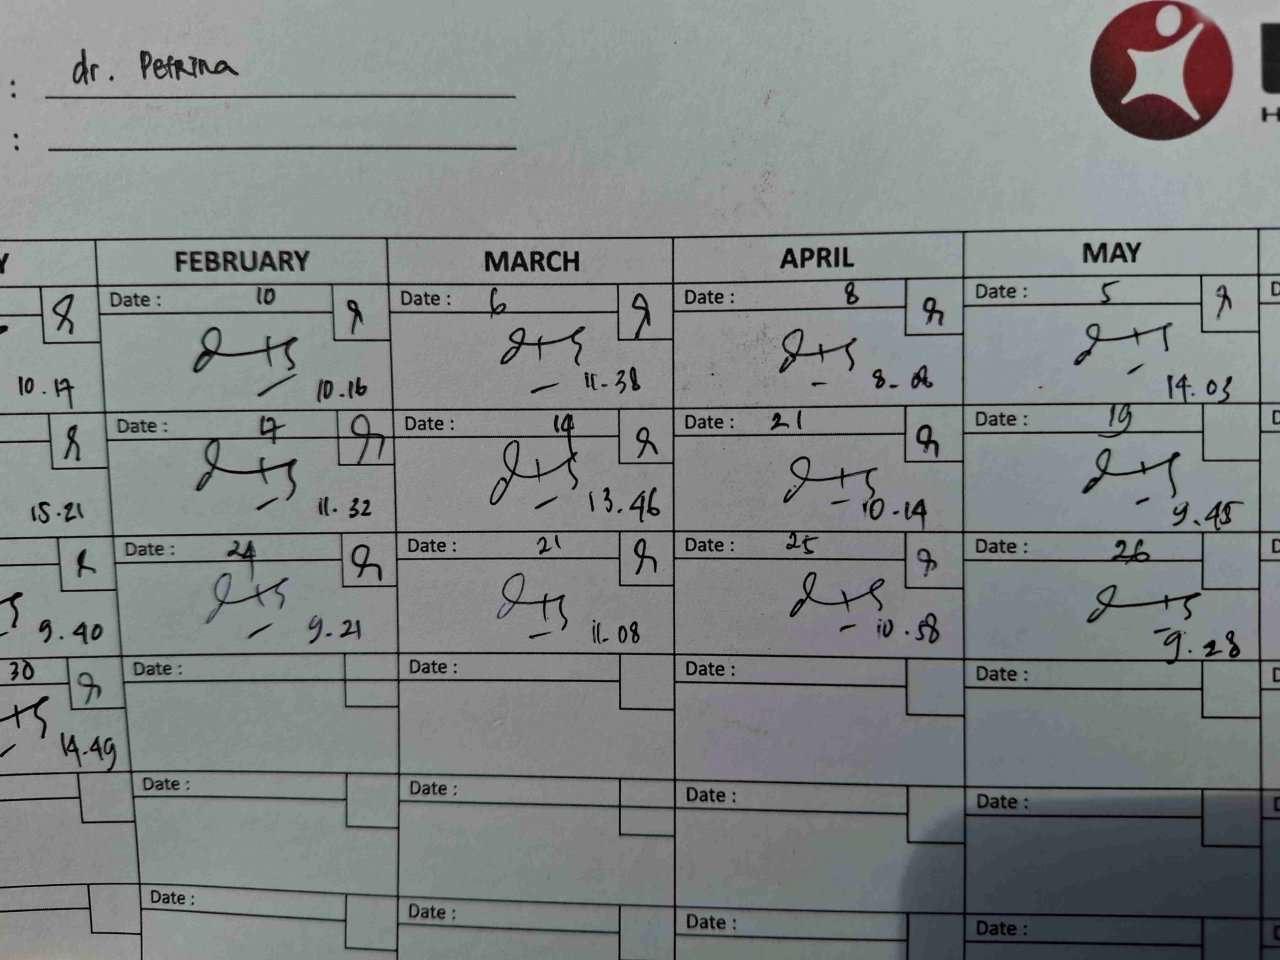 : dr. Petrina
:
H
Y FEBRUARY MARCH APRIL MAY
Date : 10 Date : 6 Date : 8 Date : 5 D
10.17 10.16 11-38 8-08 14.03
Date : 17 Date : 14 Date : 21 Date : 19
15.21 11.32 13.46 10-14 9.45
Date : 24 Date : 21 Date : 25 Date : 26 D
9.40 9-21 11-08 10.58 9.28
30 Date : Date : Date : Date : D
14.49
Date : Date : Date : Date : D
Date : Date : Date : Date : D